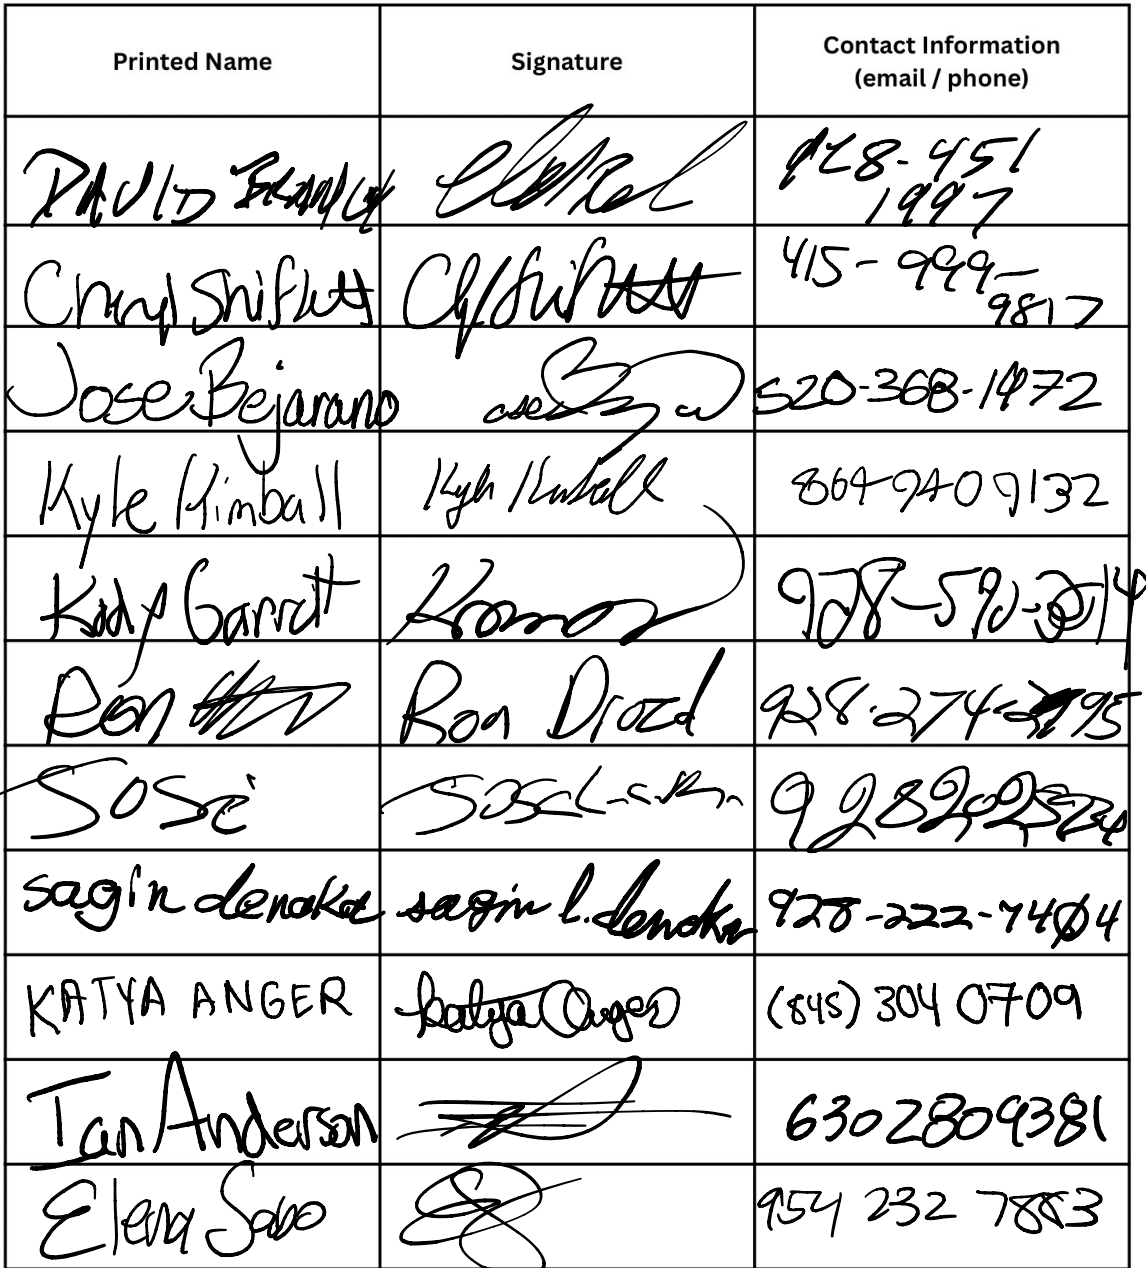 Printed Name
Signature
Contact Information
(email / phone)
DAVID
928-451
1997
Cheryl Shiflett
415-999-
9817
Jose Bejarano
520-368-1472
Kyle Kimball
Kyle Kimball
864-940 9132
Kody Garrett
Ron
Ron Drozd
928-274-
Jose
sagin denoka
sagin l. denoka
928-222-7404
KATYA ANGER
Katya Anger
(845) 304 0709
Ian Anderson
6302809381
Elena Sobo
954 232 7883